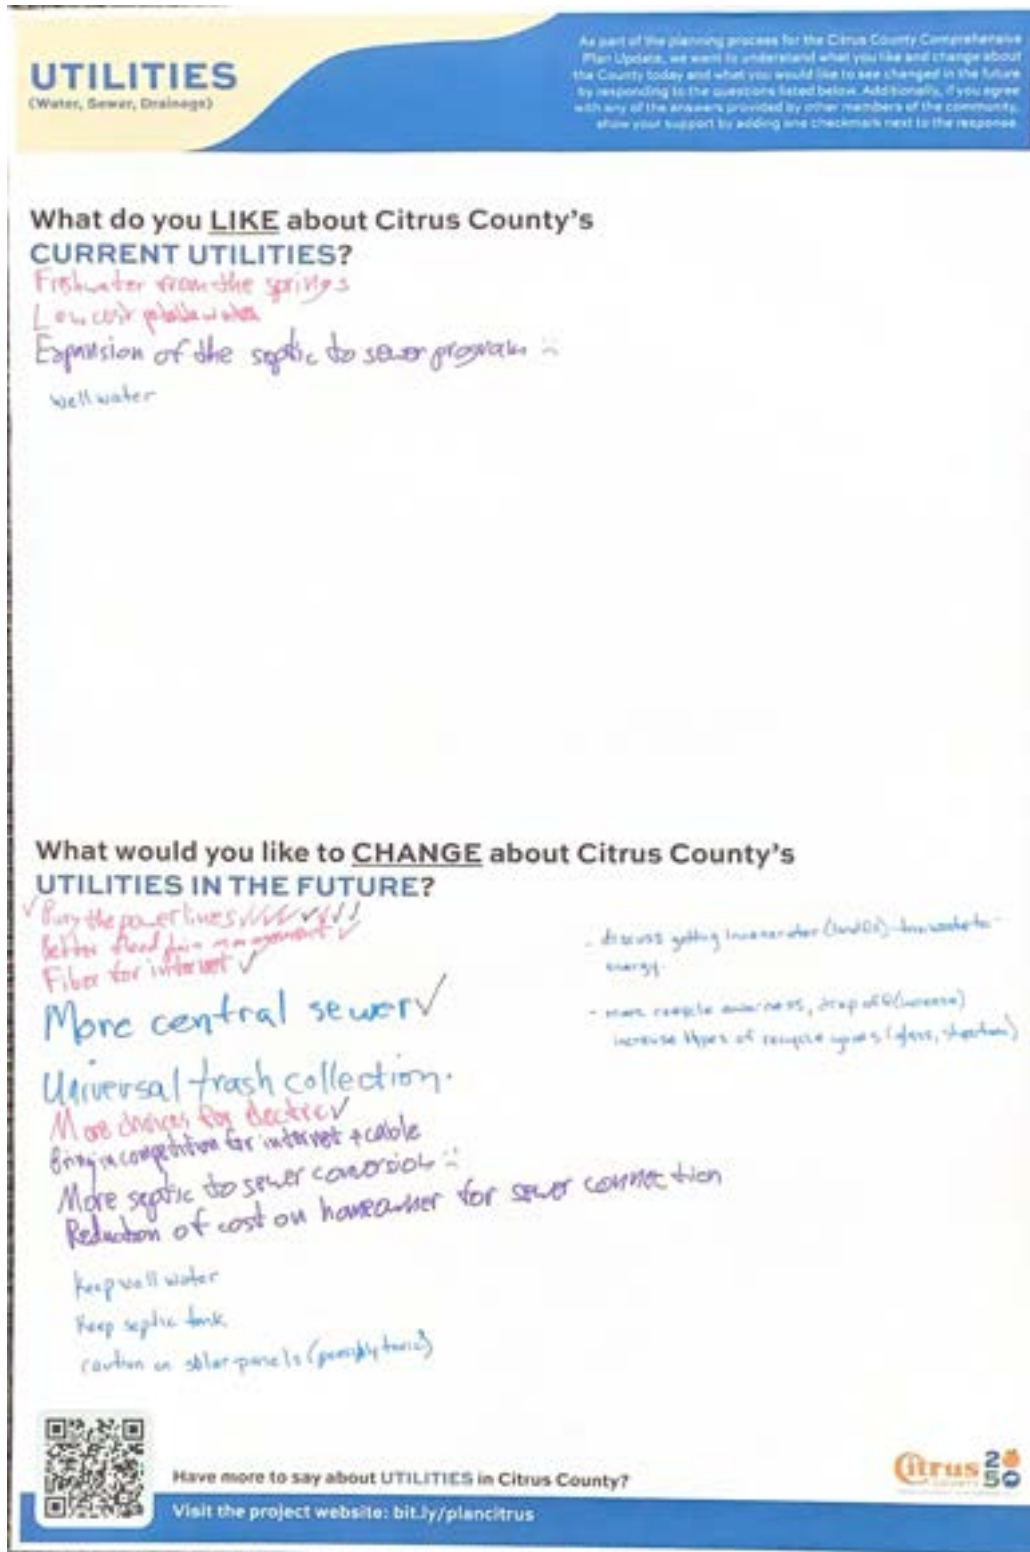 UTILITIES
(Water, Sewer, Drainage)
As part of the planning process for the Citrus County Comprehensive
Plan Update, we want to understand what you like and change about
the County today and what you would like to see changed in the future
by responding to the questions listed below. Additionally, if you agree
with any of the answers provided by other members of the community,
show your support by adding one checkmark next to the response.
What do you LIKE about Citrus County's
CURRENT UTILITIES?
Freshwater from the springs
Low cost potable water
Expansion of the septic to sewer program
well water
What would you like to CHANGE about Citrus County's
UTILITIES IN THE FUTURE?
✓ Bury the power lines ✓✓✓✓✓✓✓
Better flood management ✓
Fiber for internet ✓
More central sewer ✓
Universal trash collection.
More choices for electric ✓
Bring in competition for internet + cable
More septic to sewer conversion
Reduction of cost on homeowner for sewer connection
Keep well water
Keep septic tank
caution on solar panels (possibly toxic)
- discuss getting incenerator to
energy.
- more recycle, drop off (increase)
increase types of recycle (glass,
Have more to say about UTILITIES in Citrus County?
Visit the project website: bit.ly/plancitrus
Citrus
COUNTY
2050